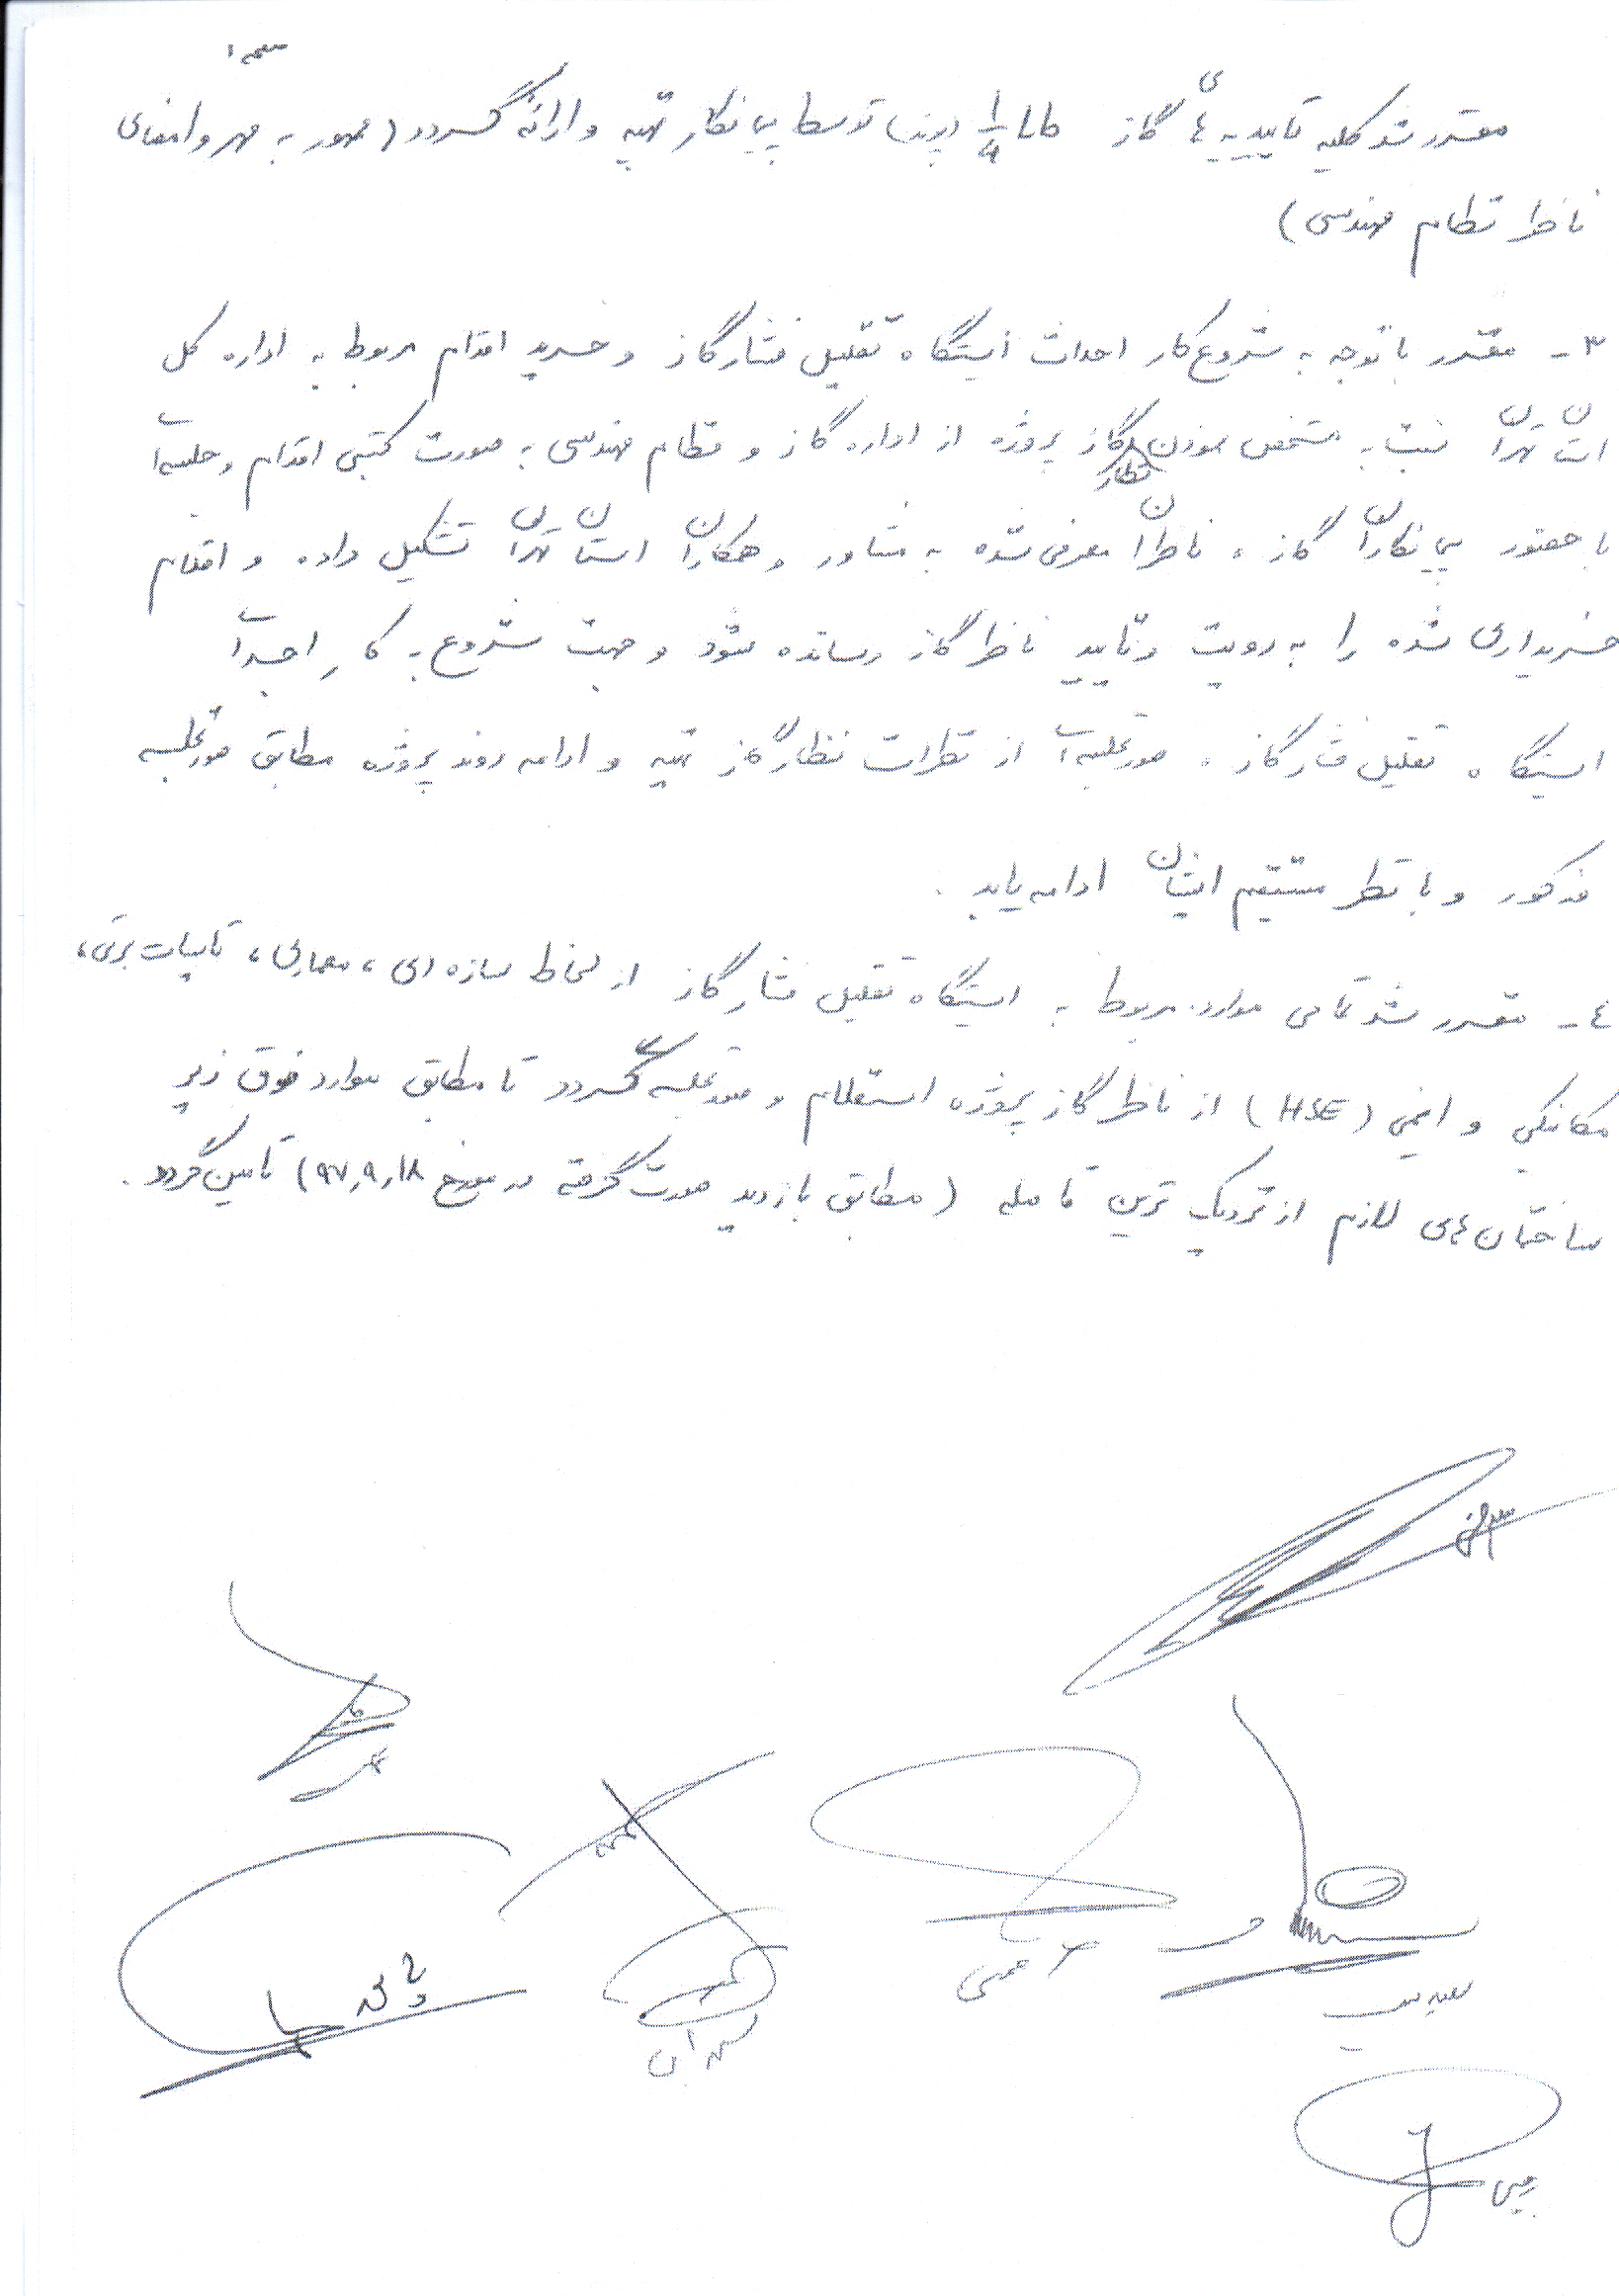 مقرر شد کلیه تاییدیه های گاز 1/4 پوند توسط پیمانکار تهیه و ارائه گردد (ممهور به مهر و امضای
ناظر نظام مهندسی)
۳- مقرر با توجه به شروع کار احداث ایستگاه تقلیل فشار گاز و خرید اقلام مربوط به اداره کل
استان تهران نسبت به مشخص نمودن نظار گاز پروژه از اداره گاز و نظام مهندسی به صورت کتبی اقدام و جلسه‌ای
با حضور پیمانکاران گاز، ناظران معرفی شده به مشاور و همکاران استان تهران تشکیل داده و اقلام
خریداری شده را به رویت و تایید ناظر گاز رسانده شود و جهت شروع به کار اجرای
ایستگاه تقلیل فشار گاز، صورتجلسه‌ای از نظرات نظار گاز تهیه و ادامه روند پروژه مطابق صورتجلسه
مذکور و با نظر مستقیم ایشان ادامه یابد.
٤- مقرر شد تمامی موارد مربوط به ایستگاه تقلیل فشار گاز از لحاظ سازه ای، معماری، تاسیسات برقی،
مکانیکی و ایمنی (HSE) از ناظر گاز پروژه استعلام و صورتجلسه گردد تا مطابق موارد فوق زیر
ساختمان های لازم از نزدیک ترین فاصله (مطابق بازدید صورت گرفته در مورخ ۹۷,۹,۱۸) تامین گردد.